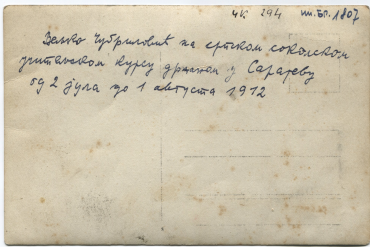 УК 294 ин.бр. 1807
Вељко Чубриловић на српском соколском
учитељском курсу држаном у Сарајеву
од 2 јула до 1 августа 1912